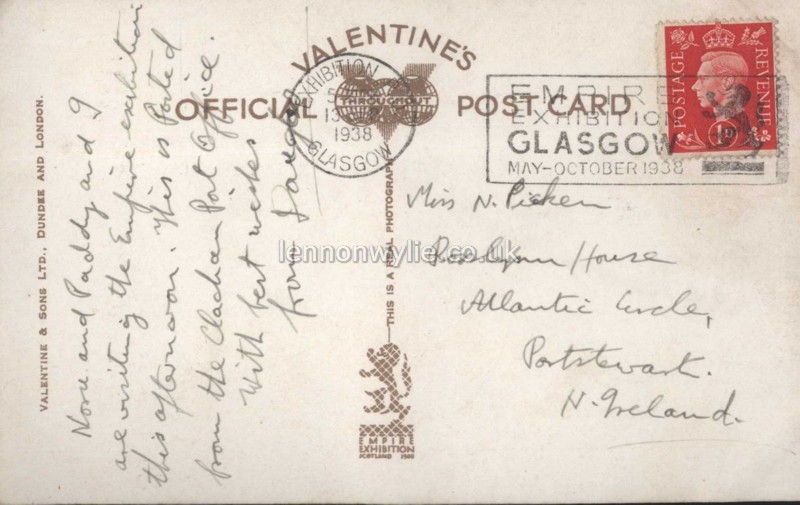 VALENTINE'S
OFFICIAL POST CARD
THROUGHOUT
EXHIBITION
1938
GLASGOW
EMPIRE
EXHIBITION
GLASGOW
MAY-OCTOBER 1938
POSTAGE
REVENUE
1D
VALENTINE & SONS LTD., DUNDEE AND LONDON.
and Paddy and I
are visiting the Empire exhibition
this afternoon. This is Posted
from the Clachan Post Office.
With best wishes
from
THIS IS A REAL PHOTOGRAPH
Miss N. Picken
House
Atlantic Circle,
Portstewart.
N. Ireland.
EMPIRE
EXHIBITION
SCOTLAND 1938
lennonwylie.co.uk